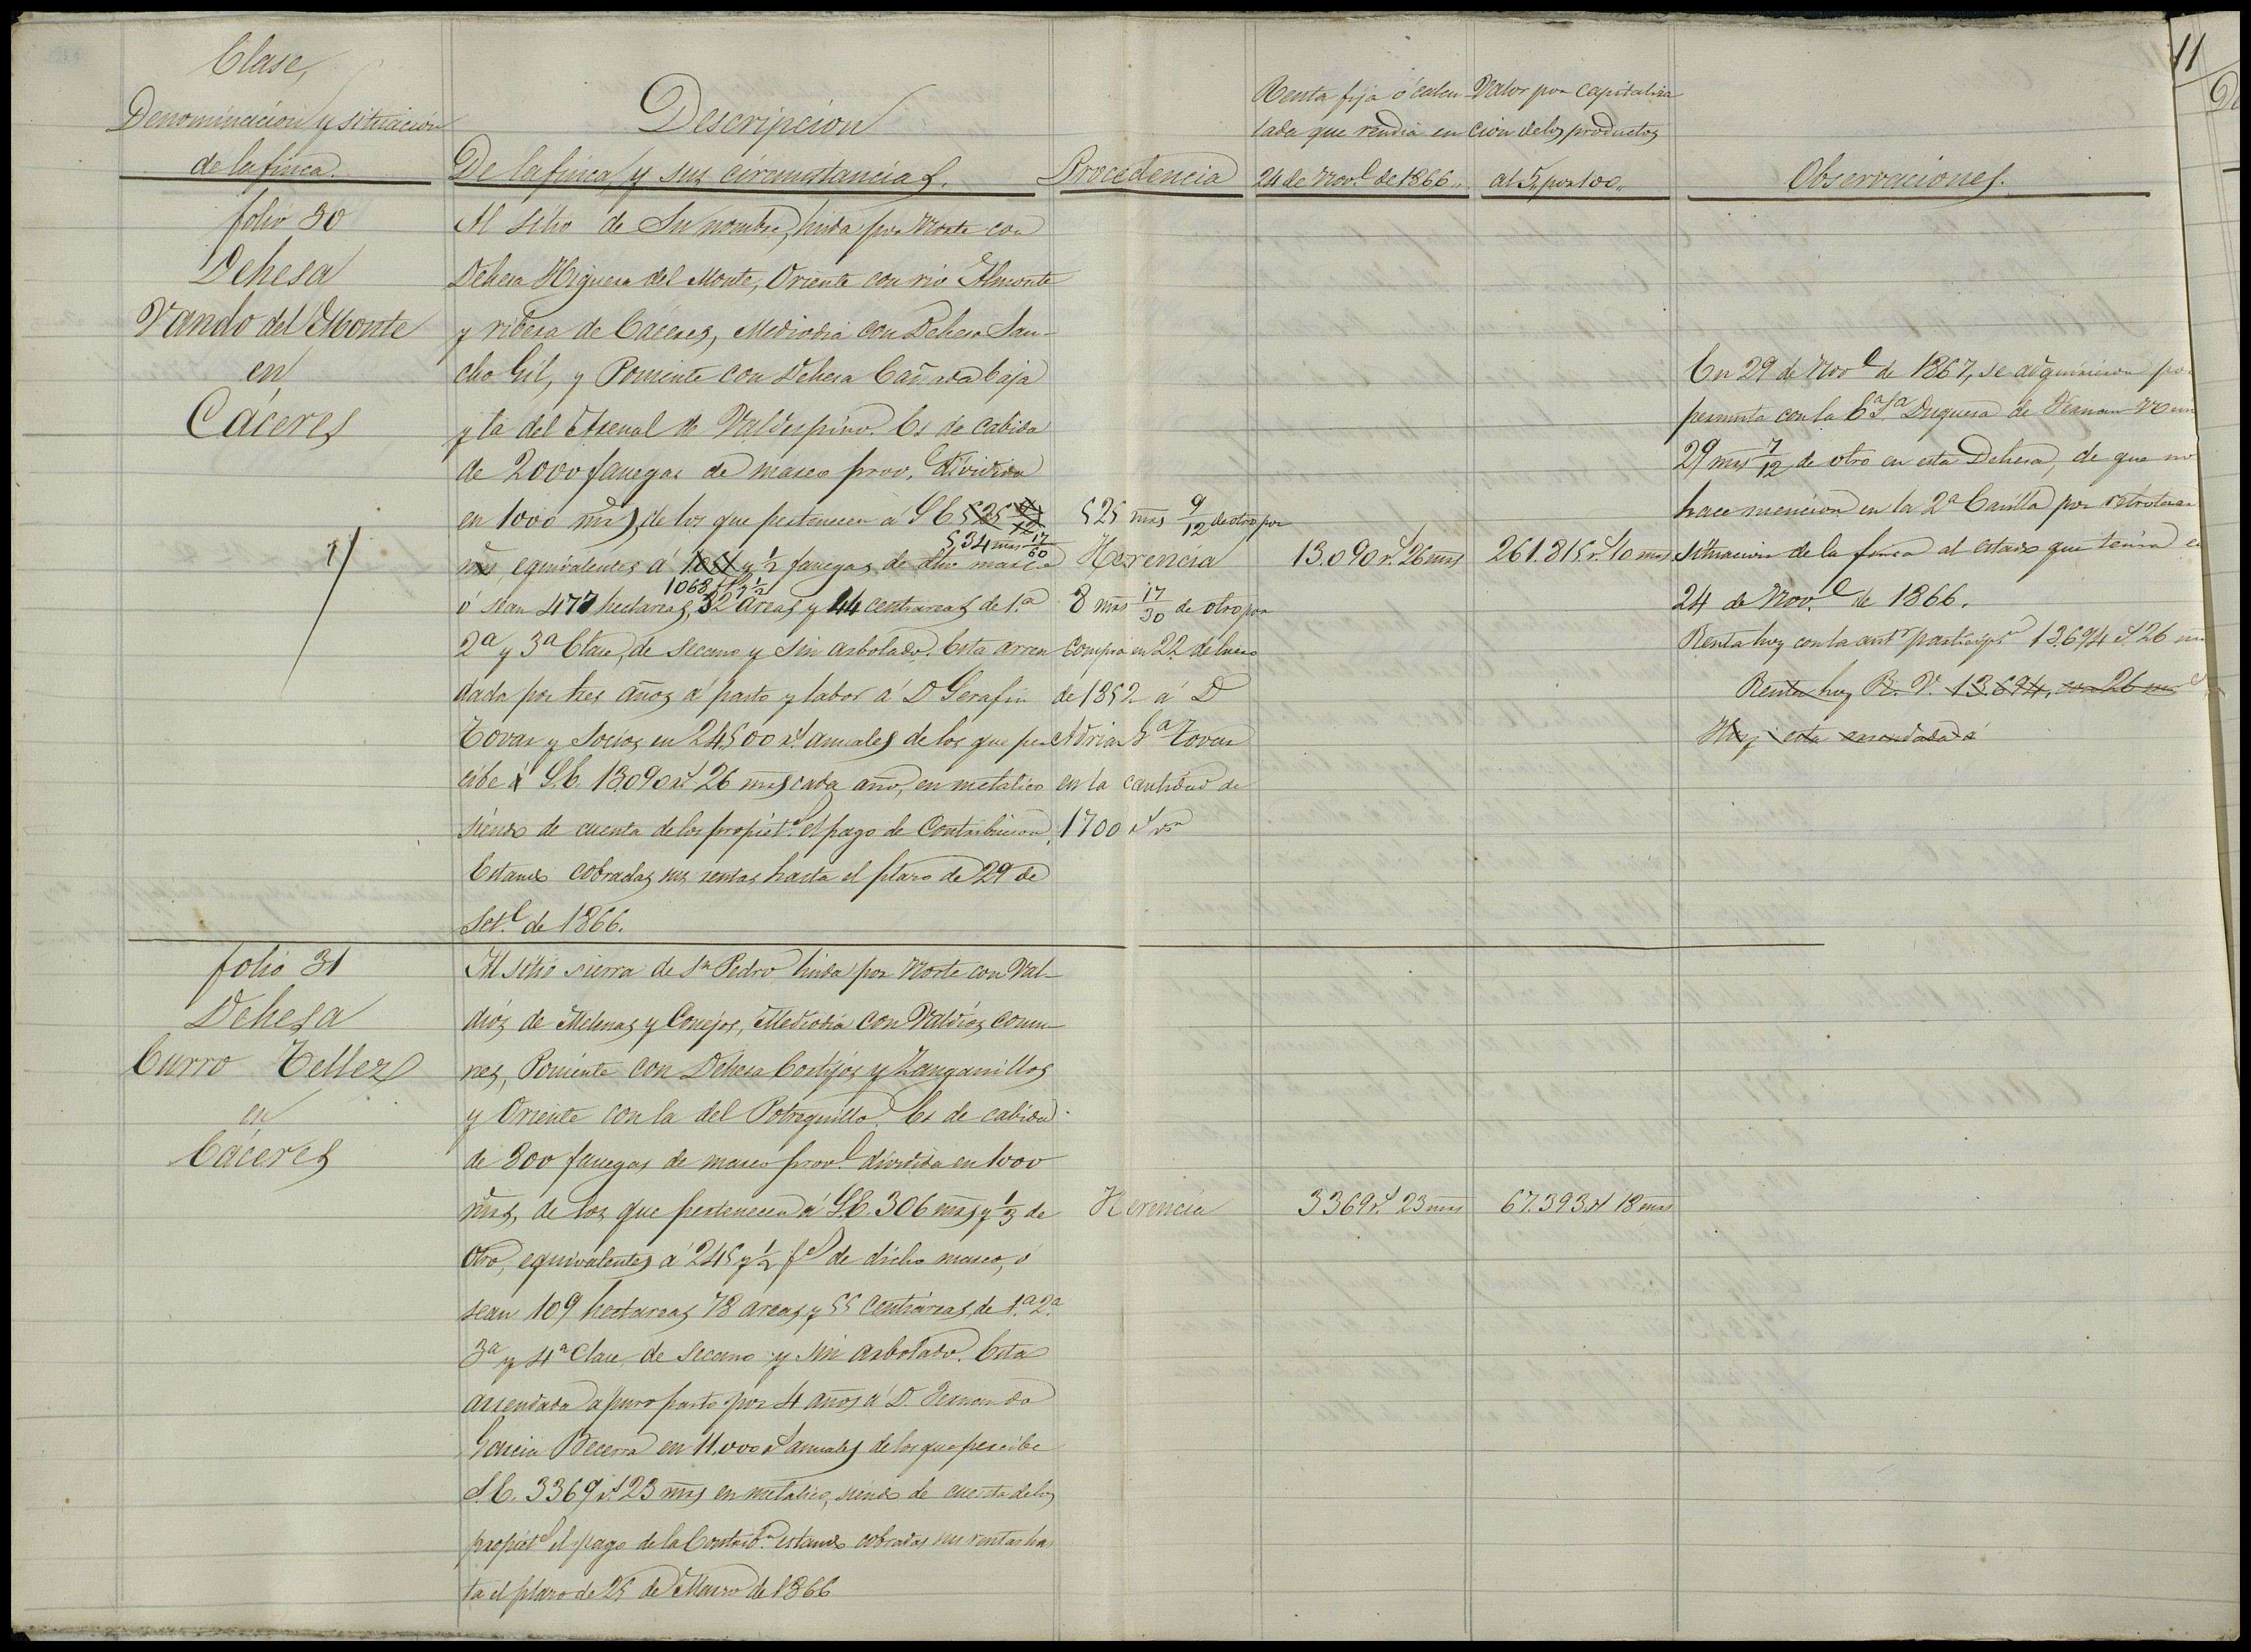 11
Clase,
Denominación y situación
de la finca.
Descripción
De la finca y sus circunstancias.
Procedencia
Renta fija ó calcu
lada que rendia en
24 de Nov.e de 1866.
Valor por capitaliza
cion de los productos
al 5 por 100.
Observaciones.
folio 30
Dehesa
Vando del Monte
en
Cáceres
Al sitio de Su nombre, linda por Norte con
Dehesa Higuera del Monte, Oriente con rio Almonte
y ribera de Caceres, Mediodia con Dehesa San-
cho Gil, y Poniente con Dehesa Cañada baja
y la del Arenal de Valdespino. Es de cabida
de 2000 fanegas de marco prov.l dividida
en 1000 mrs, de los que pertenecen á S.E. 525 9/12
534 mrs 17/60
mrs, equivalentes á 1051 y 1/2 fanegas de dho marco
1068 fs y 1/2
ó sean 477 hectareas, 32 areas y 44 centiareas de 1.a
2a y 3a Clase, de secano y sin arbolado. Esta arren
dada por tres años á pasto y labor á D Serafin
Tovar y Socios en 24,500 rs. anuales de los que per
cibe á S.E. 13.090 rs 26 mrs cada año, en metalico
siendo de cuenta de los propiet.s el pago de Contribucion,
Estando cobradas sus rentas hasta el plazo de 29 de
Set.e de 1866.
525 mrs 9/12 de otro por
Herencia
8 mrs 17/30 de otro por
compra en 22 de Enero
de 1852 á D
Adrian Ga Tovar
en la cantidad de
1700 rs vn
13.090 rs. 26 mrs
261.815 rs. 10 mrs
En 29 de Nov.e de 1867, se adquirieron po
permuta con la Ea Sa Duquesa de Fernan N un
29 mrs 7/12 de otro en esta Dehesa, de que no
hace mencion en la 2a Casilla por retrotraer
situacion de la finca al estado que tenia e
24 de Nov.e de 1866.
Renta hoy con la antr participon 13.694 rs 26 mrs
Renta hoy R. V. 13.694, con 26 mrs
Hoy esta arrendada á
folio 31
Dehesa
Curro Tellez
en
Cáceres
Al sitio sierra de Sn Pedro linda por Norte con Val-
dios de Melenas y Conejos, Mediodia con Valdios comu-
nes, Poniente con Dehesa Cortijos y Zanganillos
y Oriente con la del Potroquillo. Es de cabida
de 800 fanegas de marco prov.l dividida en 1000
mrs, de los que pertenecen á S.E. 306 mrs y 1/3 de
otro, equivalentes á 245 y 1/2 fs de dicho marco, ó
sean 109 hectareas 78 areas y 55 centiareas, de 1.a 2.a
3a y 4a Clase, de secano y sin arbolado. Esta
arrendada á puro pasto por 4 años á D. Fernando
Garcia Becerra en 11.000 rs anuales de los que percibe
S.E. 3369 rs. 23 mrs en metalico, siendo de cuenta de los
propiet.s el pago de la Contrib.n estando cobradas sus rentas has
ta el plazo de 25 de Marzo de 1866
Herencia
3369 rs. 23 mrs
67.393 rs 18 mrs